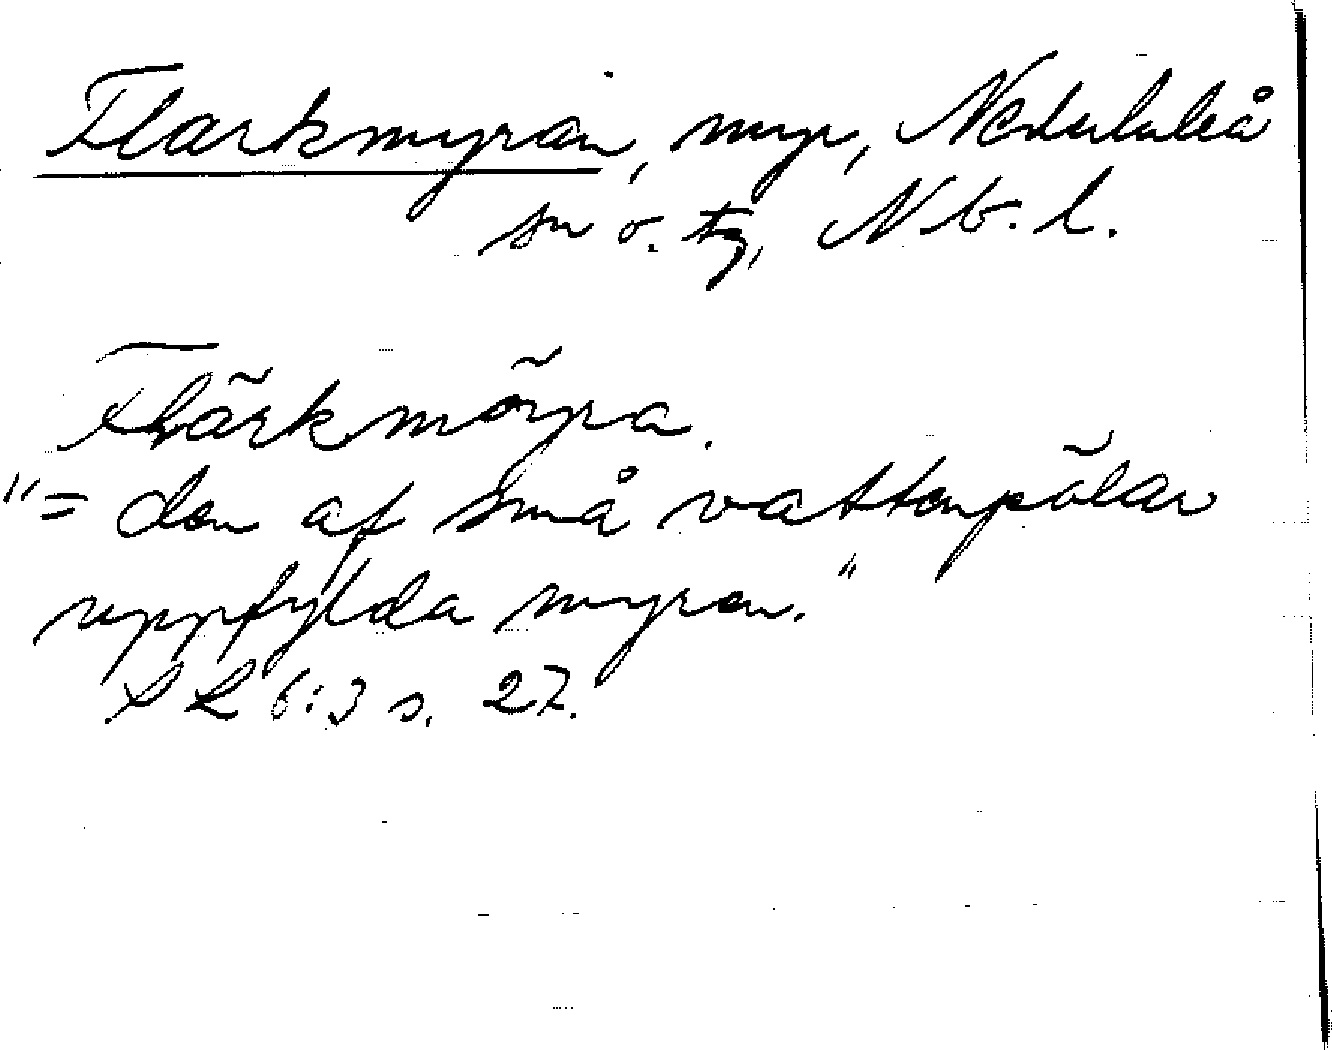 Flarkmyran, myr, Nederluleå
sn o. tg, Nb. l.
Flärkmöyra.
"= den af små vattenpölar
uppfylda myren."
SL 6:3 s. 27.